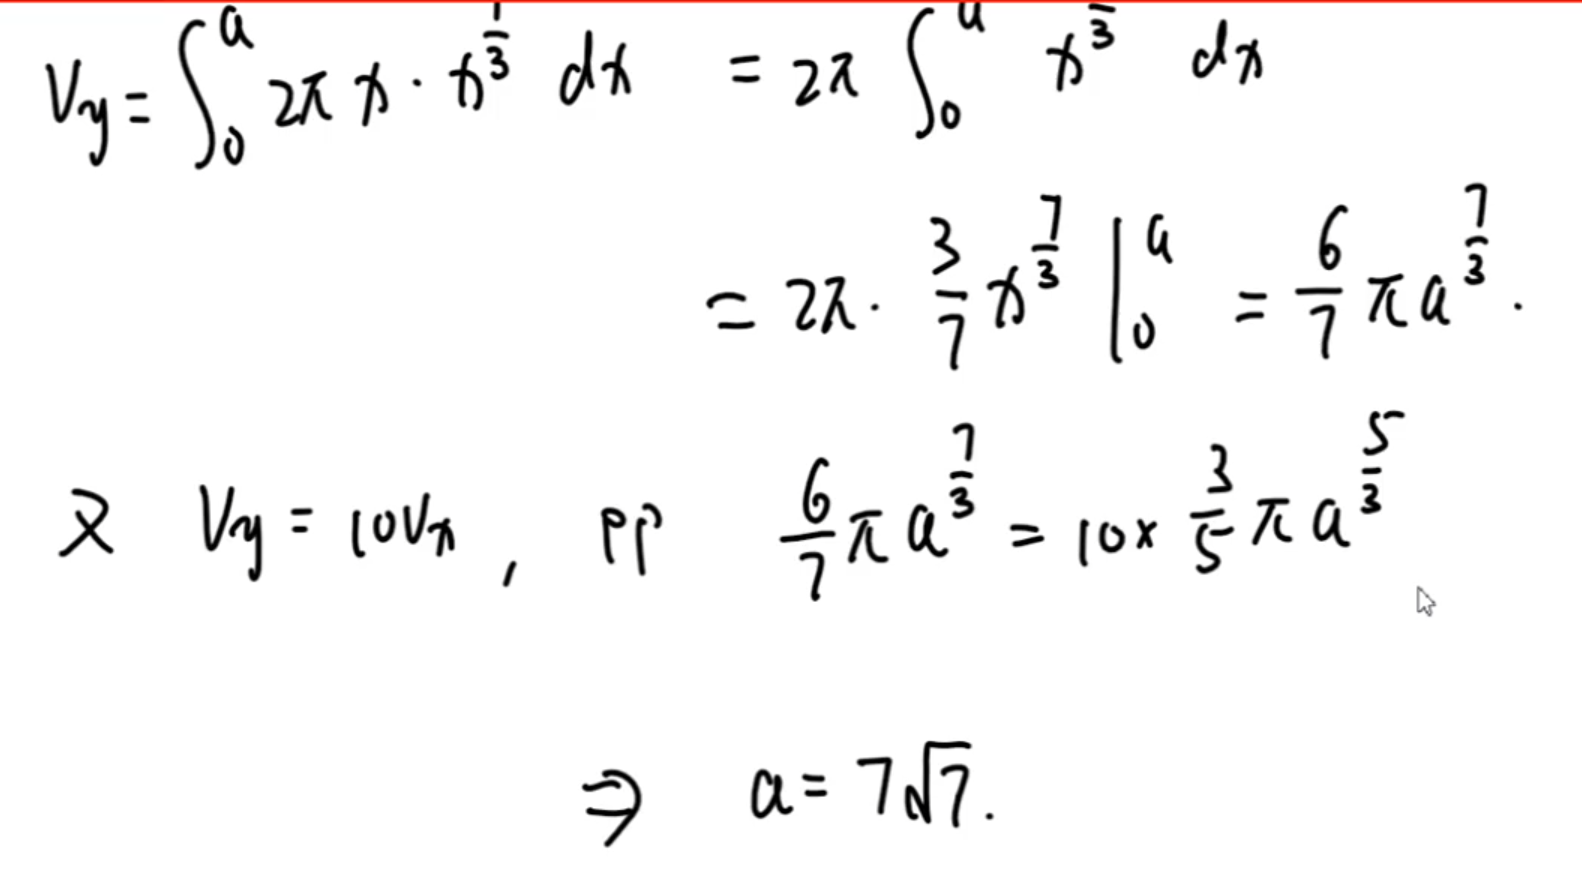 Vy = ∫₀ᵃ 2πx · x^(1/3) dx = 2π ∫₀ᵃ x^(/3) dx
= 2π · 3/7 x^(7/3) |₀ᵃ = 6/7 πa^(7/3) .
又 Vy = 10Vx , 即 6/7 πa^(7/3) = 10 × 3/5 πa^(5/3)
⇒ a = 7√7 .